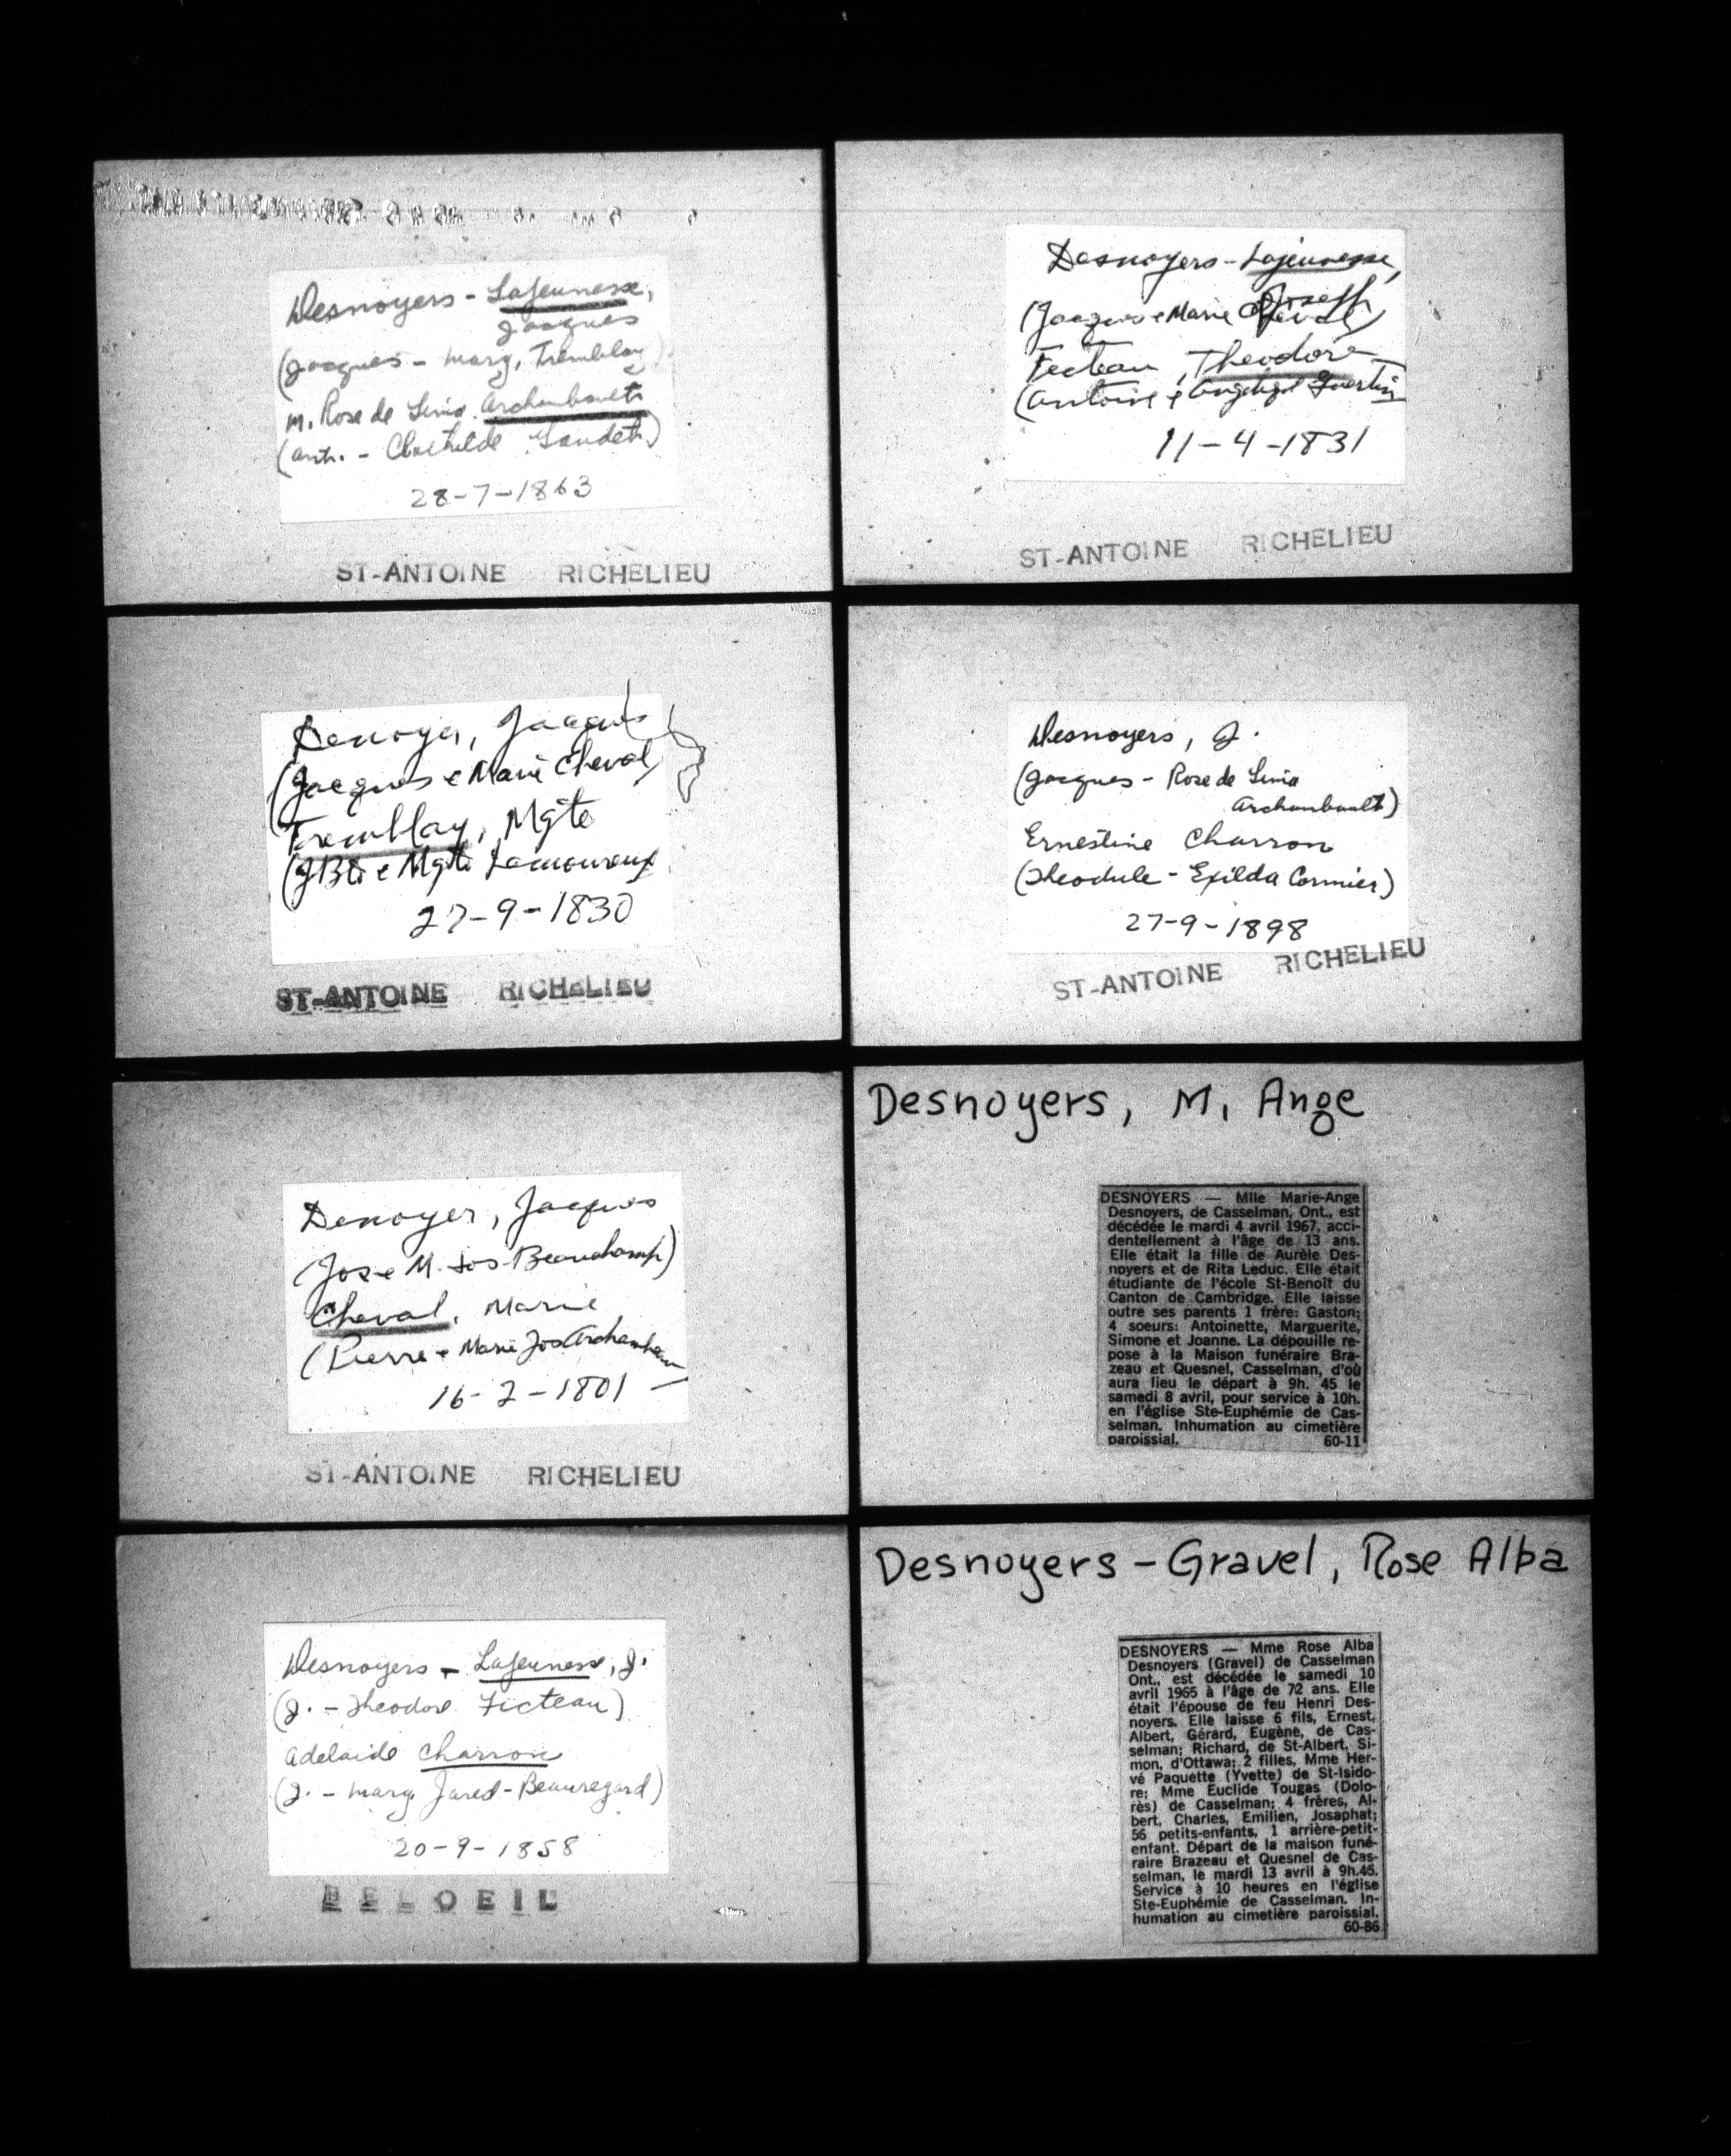 Desnoyers - Lajeunesse,
Jacques
(Jacques - Marg. Tremblay)
m. Rose de Lima Archambault
(Ant. - Clothilde Gaudet)
28-7-1863
ST-ANTOINE RICHELIEU
Desnoyers - Lajeunesse,
Joseph
(Jacques e Marie Cheval)
Fecteau, Theodore
(Antoine e Angelique Guertin
11-4-1831
ST-ANTOINE RICHELIEU
Denoyer, Jacques
(Jacques e Marie Cheval)
Tremblay, Mgte
(JBte e Mgte Lamoureux
27-9-1830
ST-ANTOINE RICHELIEU
Desnoyers, J.
(Jacques - Rose de Lima
Archambault)
Ernestine Charron
(Theodule - Exilda Cormier)
27-9-1898
ST-ANTOINE RICHELIEU
Denoyer, Jacques
(Jos e M. Jos Beauchamp)
Cheval, Marie
(Pierre e Marie Jos Archambeau
16-2-1801
ST-ANTOINE RICHELIEU
Desnoyers, M, Ange
DESNOYERS — Mlle Marie-Ange
Desnoyers, de Casselman, Ont., est
décédée le mardi 4 avril 1967, acci-
dentellement à l'âge de 13 ans.
Elle était la fille de Aurèle Des-
noyers et de Rita Leduc. Elle était
étudiante de l'école St-Benoît du
Canton de Cambridge. Elle laisse
outre ses parents 1 frère: Gaston;
4 soeurs: Antoinette, Marguerite,
Simone et Joanne. La dépouille re-
pose à la Maison funéraire Bra-
zeau et Quesnel, Casselman, d'où
aura lieu le départ à 9h. 45 le
samedi 8 avril, pour service à 10h.
en l'église Ste-Euphémie de Cas-
selman. Inhumation au cimetière
paroissial. 60-11
Desnoyers - Lajeunesse, J.
(J. - Theodore Ficteau)
Adelaide Charron
(J. - Marg. Jared - Beauregard)
20-9-1858
BELOEIL
Desnoyers - Gravel, Rose Alba
DESNOYERS — Mme Rose Alba
Desnoyers (Gravel) de Casselman
Ont., est décédée le samedi 10
avril 1965 à l'âge de 72 ans. Elle
était l'épouse de feu Henri Des-
noyers. Elle laisse 6 fils, Ernest,
Albert, Gérard, Eugène, de Cas-
selman; Richard, de St-Albert, Si-
mon, d'Ottawa; 2 filles, Mme Her-
vé Paquette (Yvette) de St-Isido-
re; Mme Euclide Tougas (Dolo-
rès) de Casselman; 4 frères, Al-
bert, Charles, Emilien, Josaphat;
56 petits-enfants, 1 arrière-petit-
enfant. Départ de la maison funé-
raire Brazeau et Quesnel de Cas-
selman, le mardi 13 avril à 9h.45.
Service à 10 heures en l'église
Ste-Euphémie de Casselman. In-
humation au cimetière paroissial.
60-86